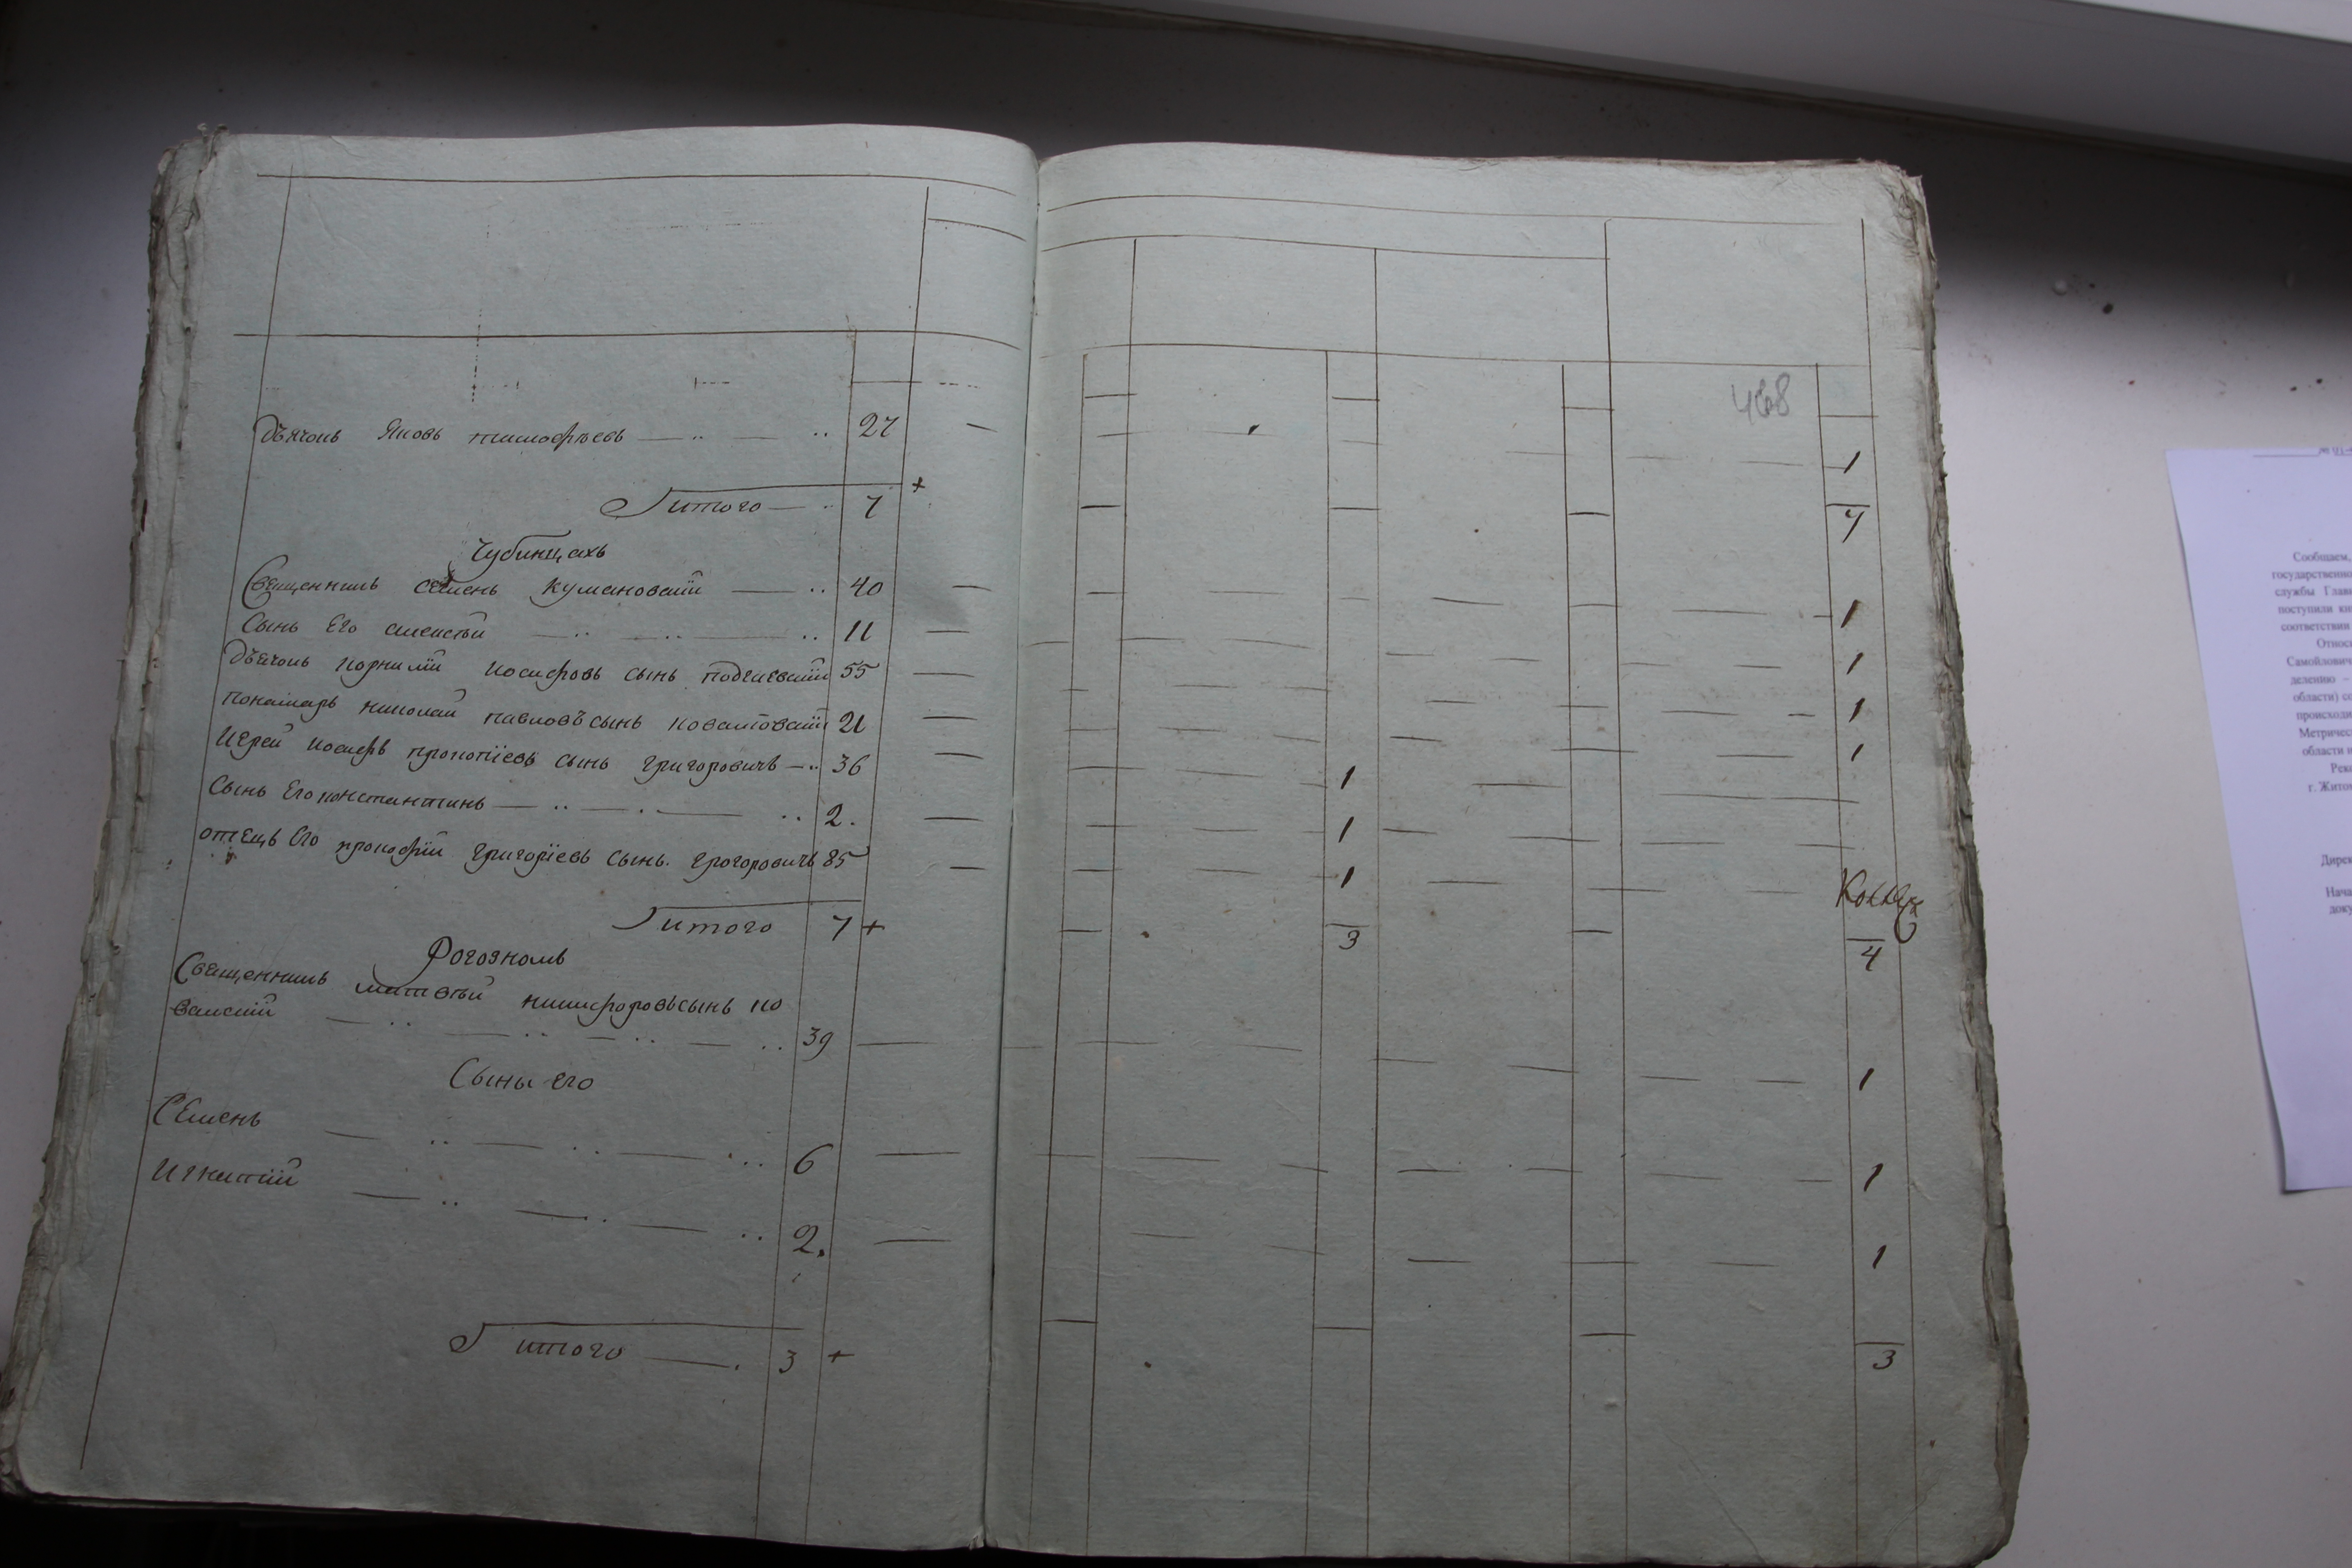 468
Дьячокъ Яковъ тимофѣевъ 27 1
итого 7 + 7
Чубинцахъ
Священникъ семень Кумановскїй 40 1
Сынъ Его алексѣй 11 1
Дьячокъ Корнилїй иосифовъ сынъ подгаевскїй 55 1
понамарь николай павловъ сынъ 21 1
Иерей иосифъ прокопїевъ сынъ григоровичъ 36 1
Сынъ Его константинъ 2. 1
отецъ Его прокофїй григорїевъ сынъ. грогоровичъ 85 1
итого 7 + 3 4
Рогозкомъ
Священникъ матвѣй никифоровъ сынъ ко
валскїй 39 1
Сыны его
Семень 6 1
Игнатїй 2. 1
итого 3 + 3
Сообщаем,
государственно
службы Глав
поступили кн
соответствии
Относ
Самойлович
делению –
области) се
происходи
Метричес
области н
Рек
г. Житом
Дирек
Нача
доку